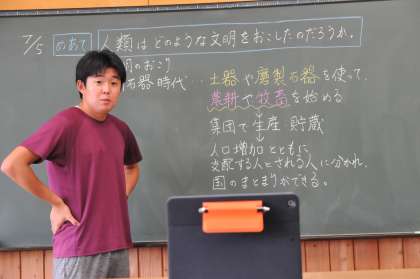 7/5 めあて 人類はどのような文明をおこしたのだろうか。
明のおこり
石器時代…土器や磨製石器を使って、
農耕や牧畜を始める
集団で生産 貯蔵
人口増加とともに
支配する人とされる人に分かれ、
国のまとまりができる。